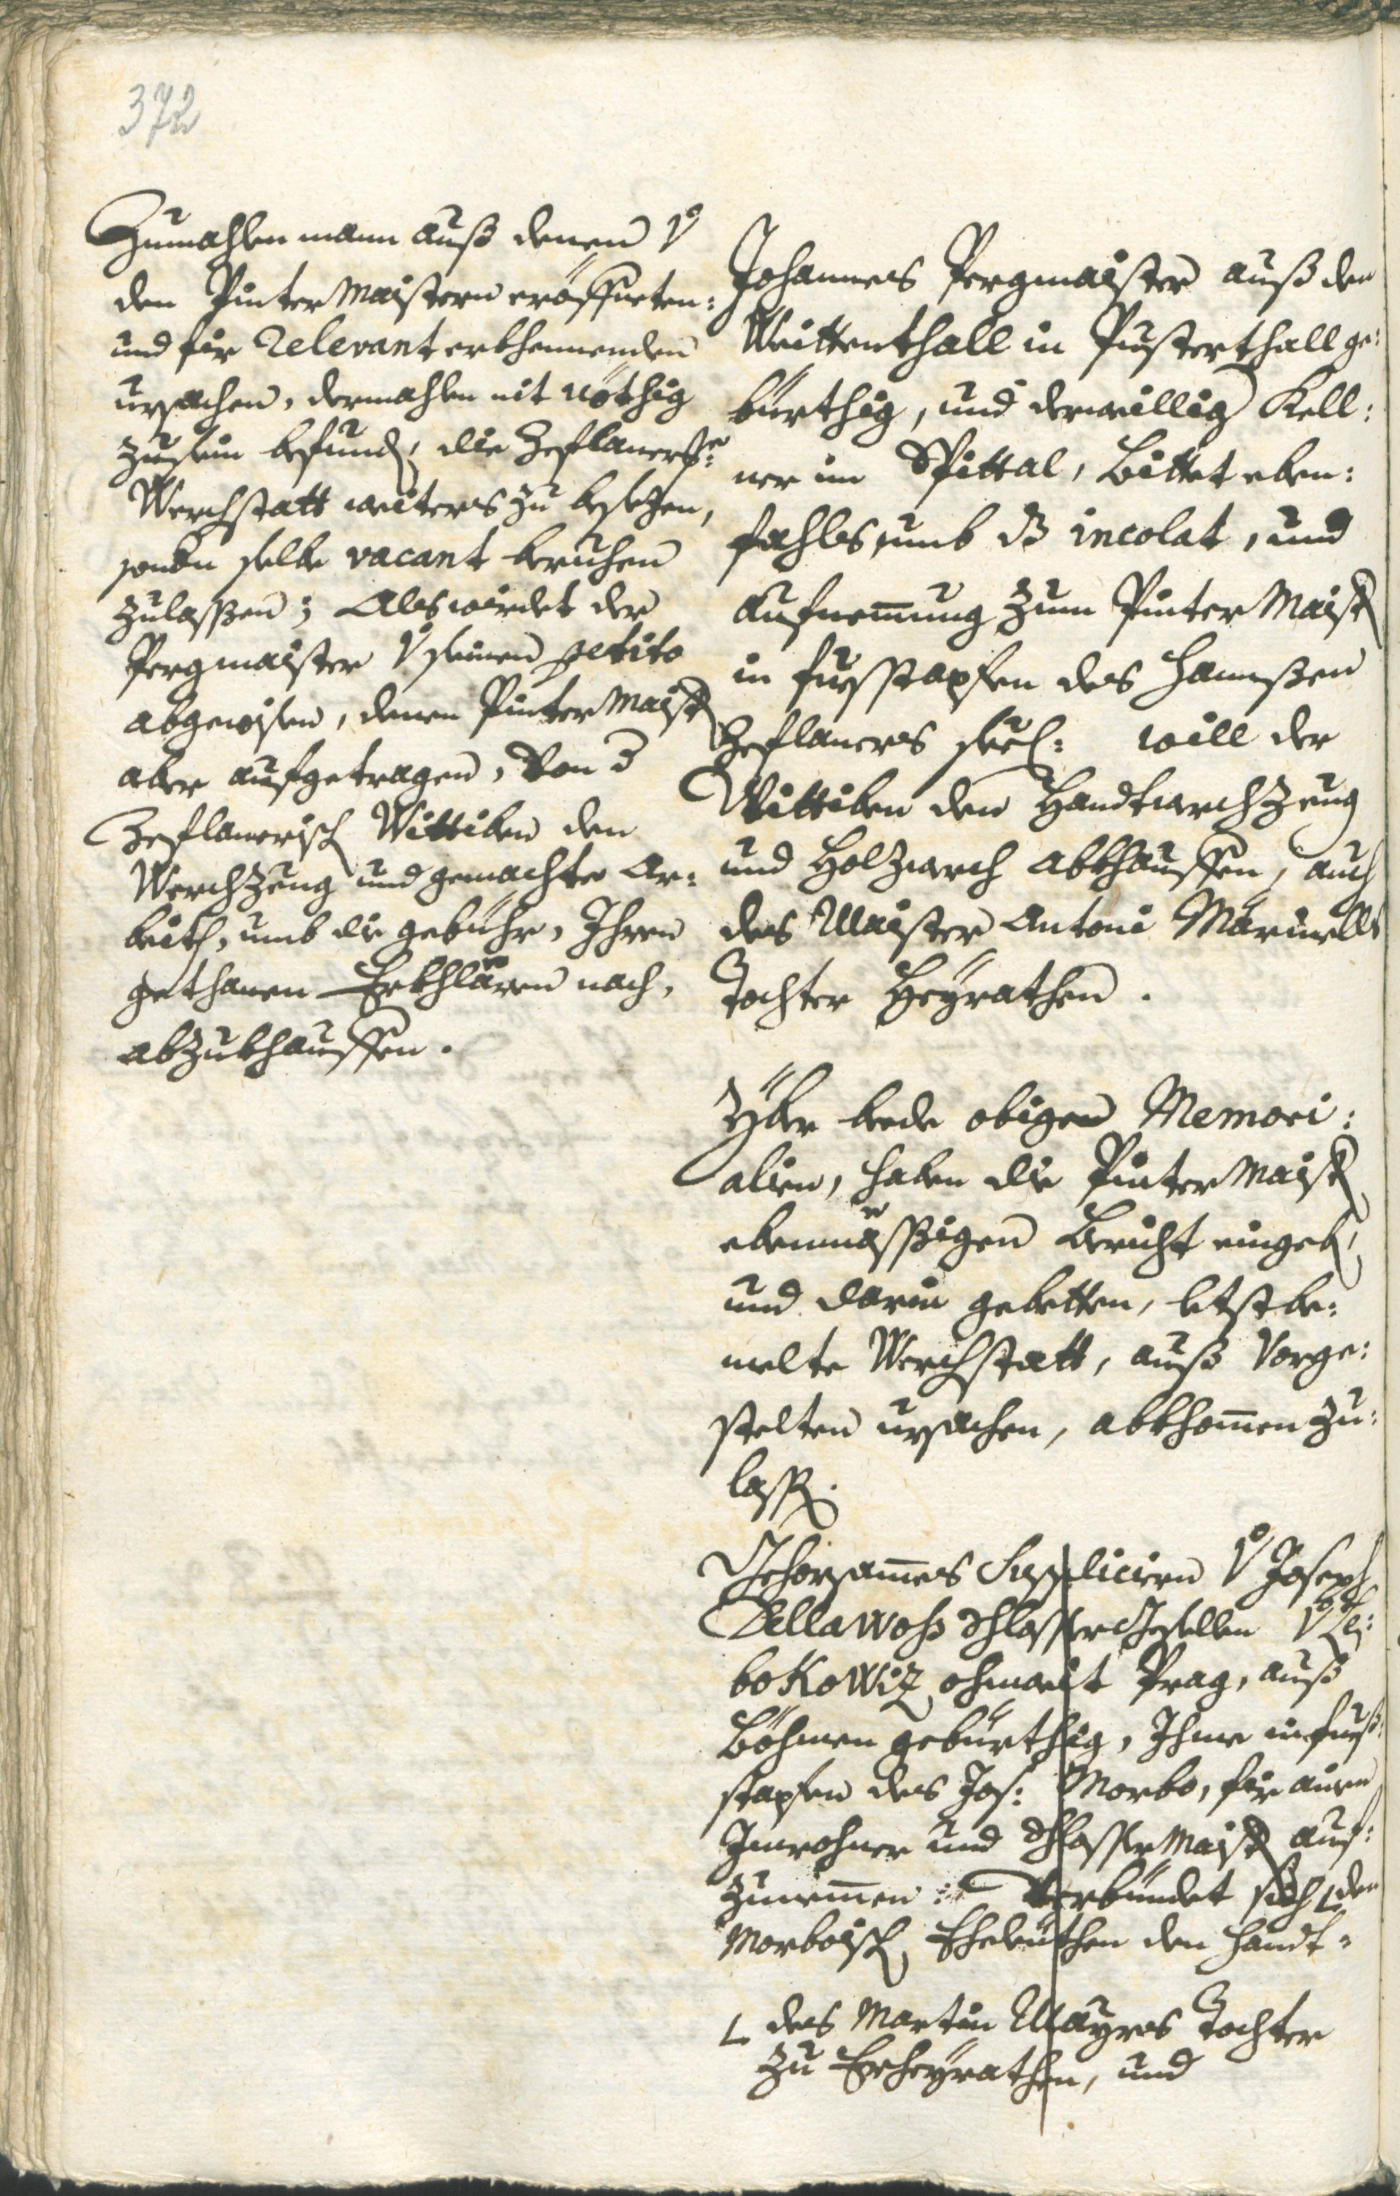 372
Zumahlen mann auß denen v
den Pinter Maistern eröffneten:
und für Relevant erkhennenden
ursachen, dermahlen nit nöthig
zu sein befund, die
Werchstatt weiters zu besezen,
sondn selbe vacant beruhen
zulaßen; Als wirdet der
Pergmaister v seinen petito
abgewisen, denen Pinter Maist
aber aufgetragen, von d
Wittiben den
Werchzeug und gemachte Ar:
beith, umb die gebühr, Ihren
gethanen Erkhlären nach,
abzukhauffen.
Johannes Pergmaister auß den
Weittenthall in Pusterthall ge:
bürthig, und derweillig Kell:
ner im Spittal, bittet eben:
fahls umb dz incolat, und
aufnemung zum Pinter Maist
in fuesstapfen des Hannßen
seel: will der
Wittiben den Handtwerchzeug
und Holzwerch abkhauffen, auch
des Maister Antoni
Tochter Heyrathen.
Yber bede obigen Memori:
alien, haben die Pinter Maist
ebenmässigen Bericht eingeb,
und darin gebetten, letstbe:
melte Werchstatt, auß vorge:
stelten ursachen, abkhomen zu:
lass.
Gehorsames Supplicieren v Joseph
Schlosser Gesellen v
bokowiz ohnweit Prag, auß
Böhmen gebürthig, Ihme in fueß:
stapfen des Jos: Morbo, für ainen
Inwohner und Schlosser Maist auf:
zunemen: Verbündet sich den
Morboisch Eheleüthen den Handt=
des Martin Mayrs Tochter
zu Erheyrathen, und